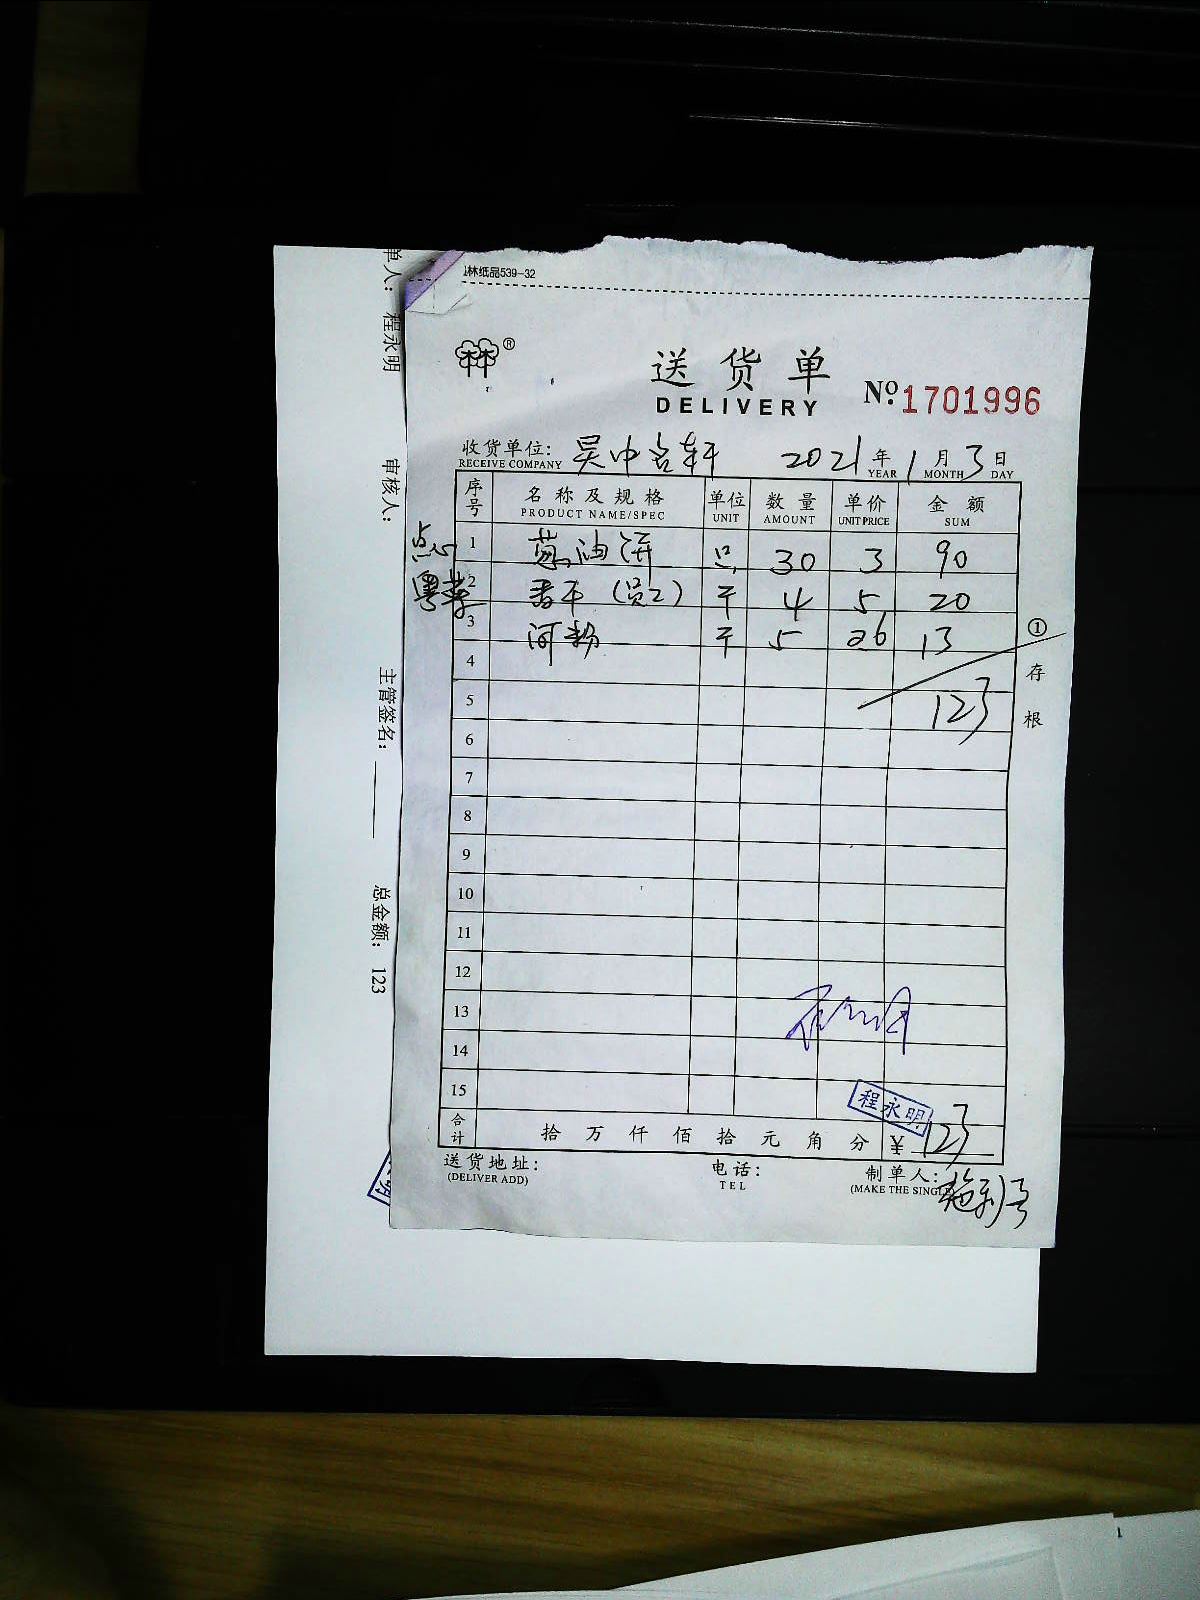 林纸品539-32
单人: 程永明
审核人:
主管签名:
总金额: 123
®
送货单
DELIVERY
Nº:1701996
收货单位: 吴中名轩 2021年1月3日
RECEIVE COMPANY YEAR MONTH DAY
序号 名称及规格 单位 数量 单价 金额
PRODUCT NAME/SPEC UNIT AMOUNT UNIT PRICE SUM
点心 1 葱油饼 只 30 3 90
2 香干(员工) 斤 4 5 20
3 河粉 斤 5 2.6 13
4
5 123
6
7
8
9
10
11
12
13
14
15
程永明
合计 拾万仟佰拾元角分 ¥ 123
送货地址: 电话: 制单人:
(DELIVER ADD) TEL (MAKE THE SINGLE
①存根